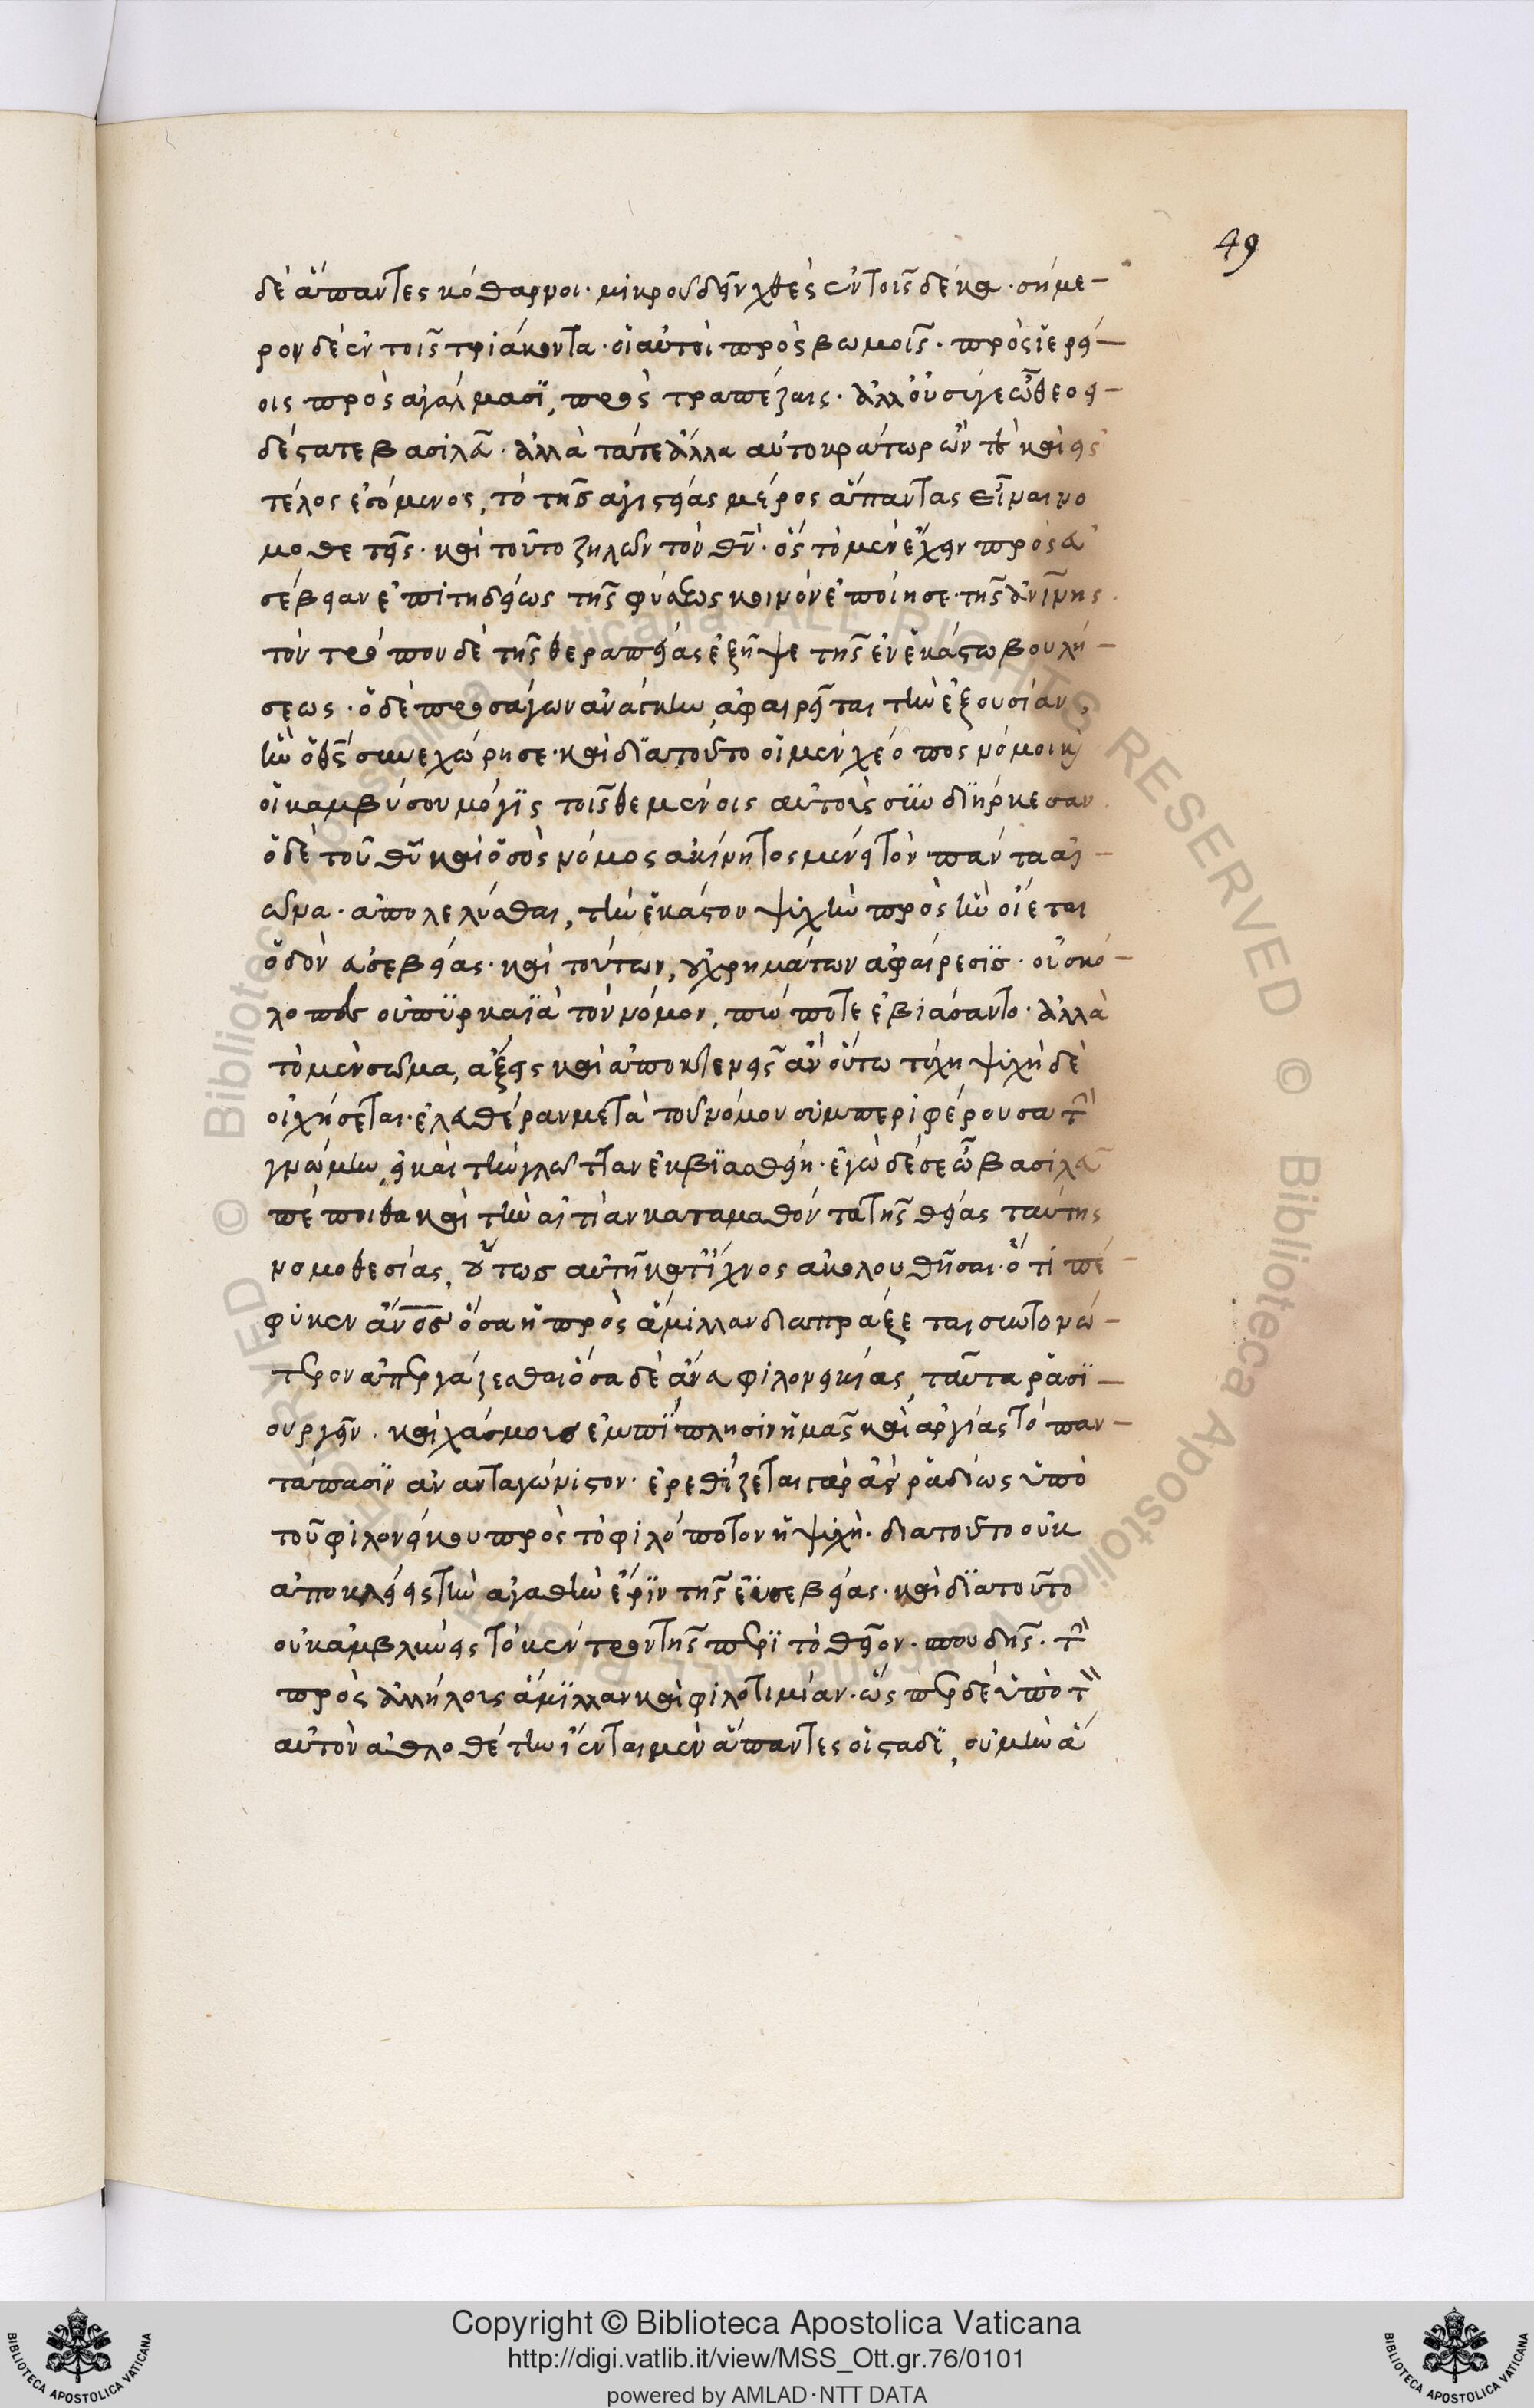 49
δὲ ἅπαντες κόθαρνοι· μικροῦ δεῖν χθὲς ἐν τοῖς δέκα· σήμε-
ρον δὲ ἐν τοῖς τριάκοντα· οἱ αὐτοὶ πρὸς βωμοῖς· πρὸς ἱερεί-
οις πρὸς ἀγάλμασι, πρὸς τραπέζαις· ἀλλ' οὐ σύγε ὦ θεοει-
δέστατε βασιλεῦ· ἀλλὰ τά τε ἄλλα αὐτοκράτωρ ὤν τε καὶ εἰς
τέλος ἐσόμενος, τὸ τῆς ἁγιστείας μέρος ἅπαντας εἶναι νο
μοθετεῖς· καὶ τοῦτο ζηλῶν τὸν θν· ὃς τὸ μὲν ἔχειν πρὸς εὐ
σέβειαν ἐπιτηδείως τῆς φύσεως κοινὸν ἐποίησε τῆς ἀνίνης·
τὸν τρόπον δὲ τῆς θεραπείας ἐξῆψε τῆς ἐν ἑκάστω βουλή-
σεως· ὁ δὲ προσάγων ἀνάγκην, ἀφαιρεῖται τὴν ἐξουσίαν,
ἣν ὁ θς συνεχώρησε· καὶ διὰ τοῦτο οἱ μὲν χέοπος νόμοι καὶ
οἱ καμβύσου μόγις τοῖς θεμένοις αὐτοὺς συνδιήρκεσαν·
ὁ δὲ τοῦ θῦ καὶ ὁ σὸς νόμος ἀκίνητος μένει τὸν πάντα αἰ-
ῶνα· ἀπολελύσθαι, τὴν ἑκάστου ψυχὴν πρὸς ἣν οἴεται
ὁδὸν εὐσεβείας· καὶ τοῦτον, οὐ χρημάτων ἀφαίρεσις· οὐ σκό-
λοπες οὐ πυρκαϊὰ τὸν νόμον, πώποτε ἐβιάσαντο· ἀλλὰ
τὸ μὲν σῶμα, ἄξεις καὶ ἀποκτενεῖς ἂν οὕτω τύχη ψυχὴ δὲ
οἰχήσεται· ἐλευθέραν μετὰ τοῦ νόμου συμπεριφέρουσα τὴν
γνώμην, εἰ καὶ τὴν γλῶτταν ἐκβιασθείη· ἐγὼ δέ σε ὦ βασιλεῦ
πέποιθα καὶ τὴν αἰτίαν καταμαθόντα τῆς θείας ταύτης
νομοθεσίας, οὕτως αὐτῇ κατ' ἴχνος ἀκολουθῆσαι· ὅτι πέ-
φυκεν ἄνος ὅσα ᾗ πρὸς ἅμιλλαν διαπράξεται συντονώ-
τερον ἀπεργάζεσθαι ὅσα δὲ ἄνευ φιλονεικίας, ταῦτα ῥᾳδι-
ουργεῖν· καὶ χάσμοις ἐμπίπλησιν ἡμᾶς καὶ ἀργίας τὸ παν-
τάπασιν ἀνανταγώνιστον· ἐρεθίζεται γὰρ ἀεὶ ῥᾳδίως ὑπὸ
τοῦ φιλονείκου πρὸς τὸ φιλόπονον ἡ ψυχή· διὰ τοῦτο οὐκ
ἀποκλείεις τὴν ἀγαθὴν ἔριν τῆς εὐσεβείας· καὶ διὰ τοῦτο
οὐκ ἀμβλύνεις τὸ κέντρον τῆς περὶ τὸ θεῖον· σπουδῆς· τὴν
πρὸς ἀλλήλοις ἅμιλλαν καὶ φιλοτιμίαν· ὥσπερ δὲ ὑπὸ τὸν
αὐτὸν ἀθλοθέτην ἵενται μὲν ἅπαντες οἱ σταδι, οὐ μὴν ἀ
Copyright © Biblioteca Apostolica Vaticana
http://digi.vatlib.it/view/MSS_Ott.gr.76/0101
powered by AMLAD·NTT DATA